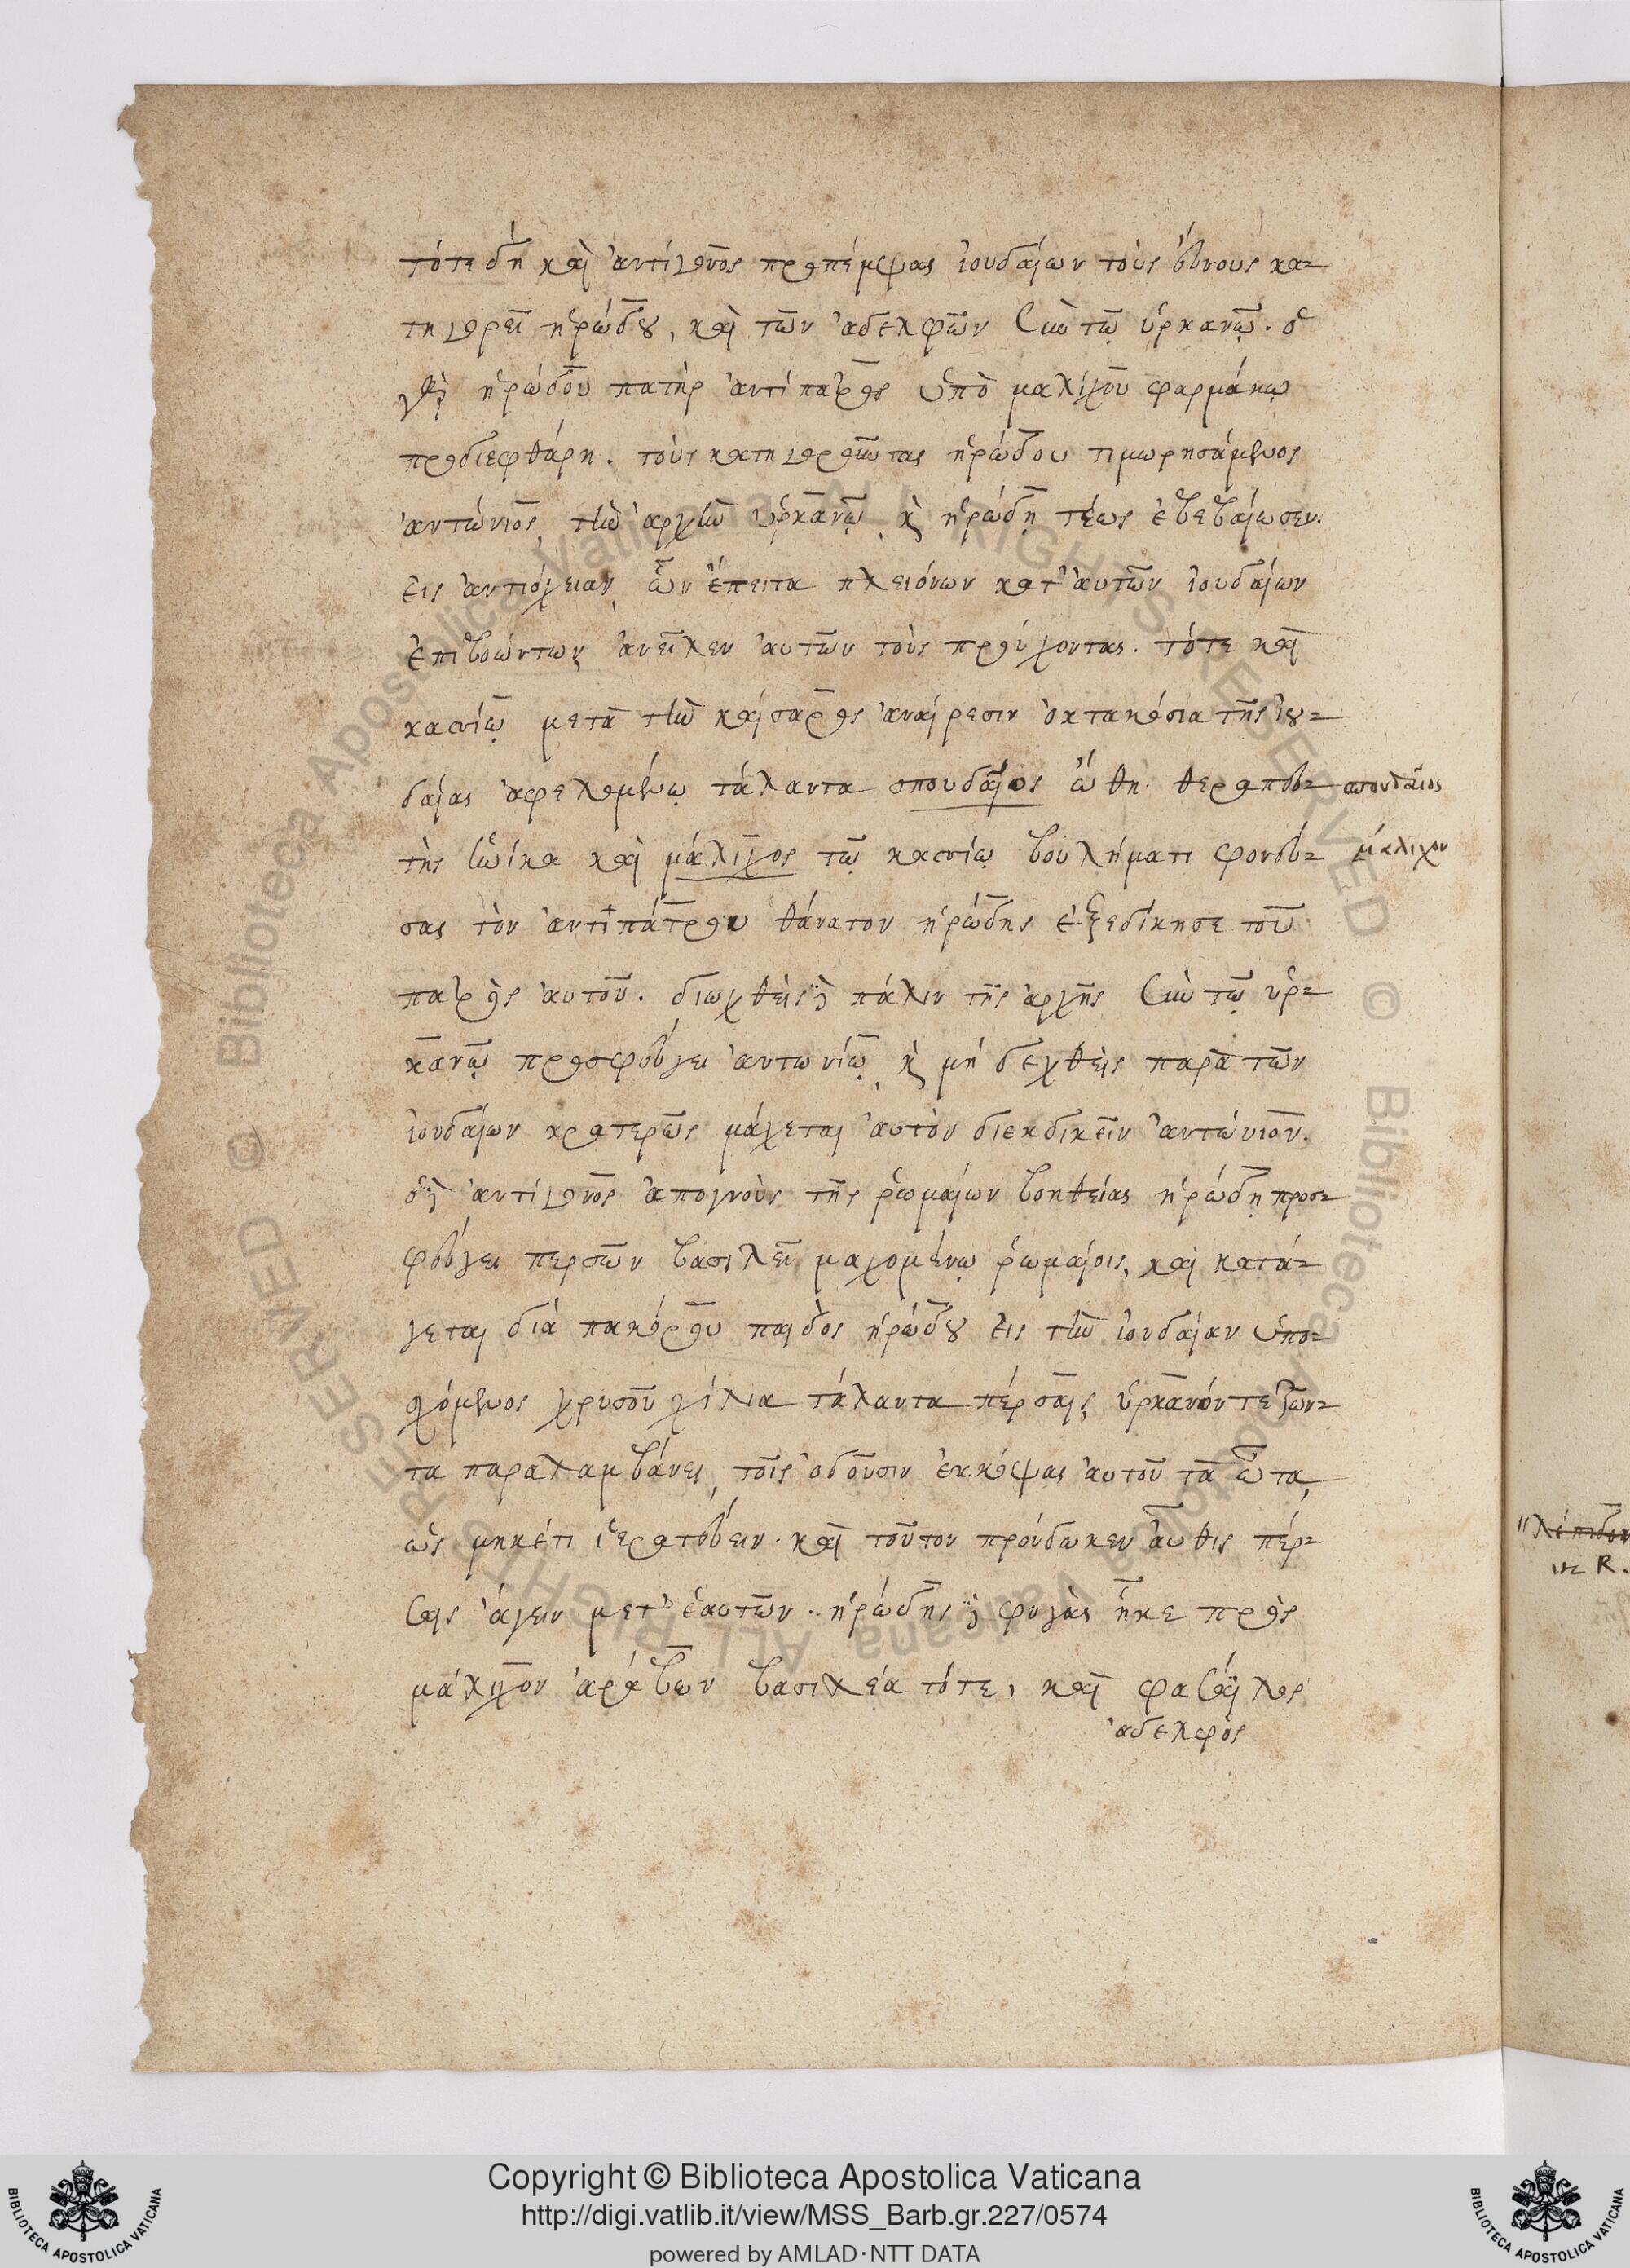 τότε δὴ καὶ ἀντίγονος προπέμψας ἰουδαίων τοὺς εὔνους κα=
τηγορεῖ ἡρώδου, καὶ τῶν ἀδελφῶν σὺν τῷ ὑρκανῷ. ὁ
γὰρ ἡρώδου πατὴρ ἀντίπατρος ὑπὸ μαλίχου φαρμάκῳ
προδιεφθάρη. τοὺς κατηγοροῦντας ἡρώδου τιμωρησάμενος
ἀντώνιος, τὴν ἀρχὴν ὑρκανῷ, κ ἡρώδῃ τέως ἐβεβαίωσεν.
εἰς ἀντιόχειαν, ὧν ἔπειτα πλειόνων κατ' αὐτῶν ἰουδαίων
ἐπιβοώντων, ἀνεῖλεν αὐτῶν τοὺς προὔχοντας. τότε καὶ
κασσίῳ μετὰ τὴν καίσαρος ἀναίρεσιν ὀκτακόσια τῆς ἰου=
δαίας ἀφελομένῳ τάλαντα σπουδαῖος ὤθη. θεραπευ= σπουδαῖος
τὴς καὶ μάλιχος τῷ κασσίῳ βουλήματι φονεύ= μάλιχον
σας τὸν ἀντιπάτρου θάνατον ἡρώδης ἐξεδίκησε τοῦ
πατρὸς αὐτοῦ. διωχθεὶς δὲ πάλιν τῆς ἀρχῆς σὺν τῷ ὑρ=
κανῷ προσφεύγει ἀντωνίῳ, κ μὴ δεχθεὶς παρὰ τῶν
ἰουδαίων κρατερῶς μάχεται αὐτὸν διεκδικεῖν ἀντώνιον.
ὁ δὲ ἀντίγονος ἀπογνοὺς τῆς ῥωμαίων βοηθείας ἡρώδῃ προσ=
φεύγει περσῶν βασιλεῖ μαχομένῳ ῥωμαίοις, καὶ κατά=
γεται διὰ πακόρου παιδὸς ἡρώδου εἰς τὴν ἰουδαίαν ὑπο=
σχόμενος χρυσοῦ χίλια τάλαντα πέρσαις, ὑρκανόν τε ζῶν=
τα παραλαμβάνει, τοῖς ὀδοῦσιν ἐκκόψας αὐτοῦ τὰ ὦτα,
ὡς μηκέτι ἱερατεύειν. καὶ τοῦτον προύδωκεν αὖθις πέρ=
σαις ἄγειν μετ' ἑαυτῶν. ἡρώδης δὲ φυγὰς ἧκε πρὸς
μάλιχον ἀράβων βασιλέα τότε, καὶ φασάηλος
ἀδελφὸς
in R.
Copyright © Biblioteca Apostolica Vaticana
http://digi.vatlib.it/view/MSS_Barb.gr.227/0574
powered by AMLAD·NTT DATA